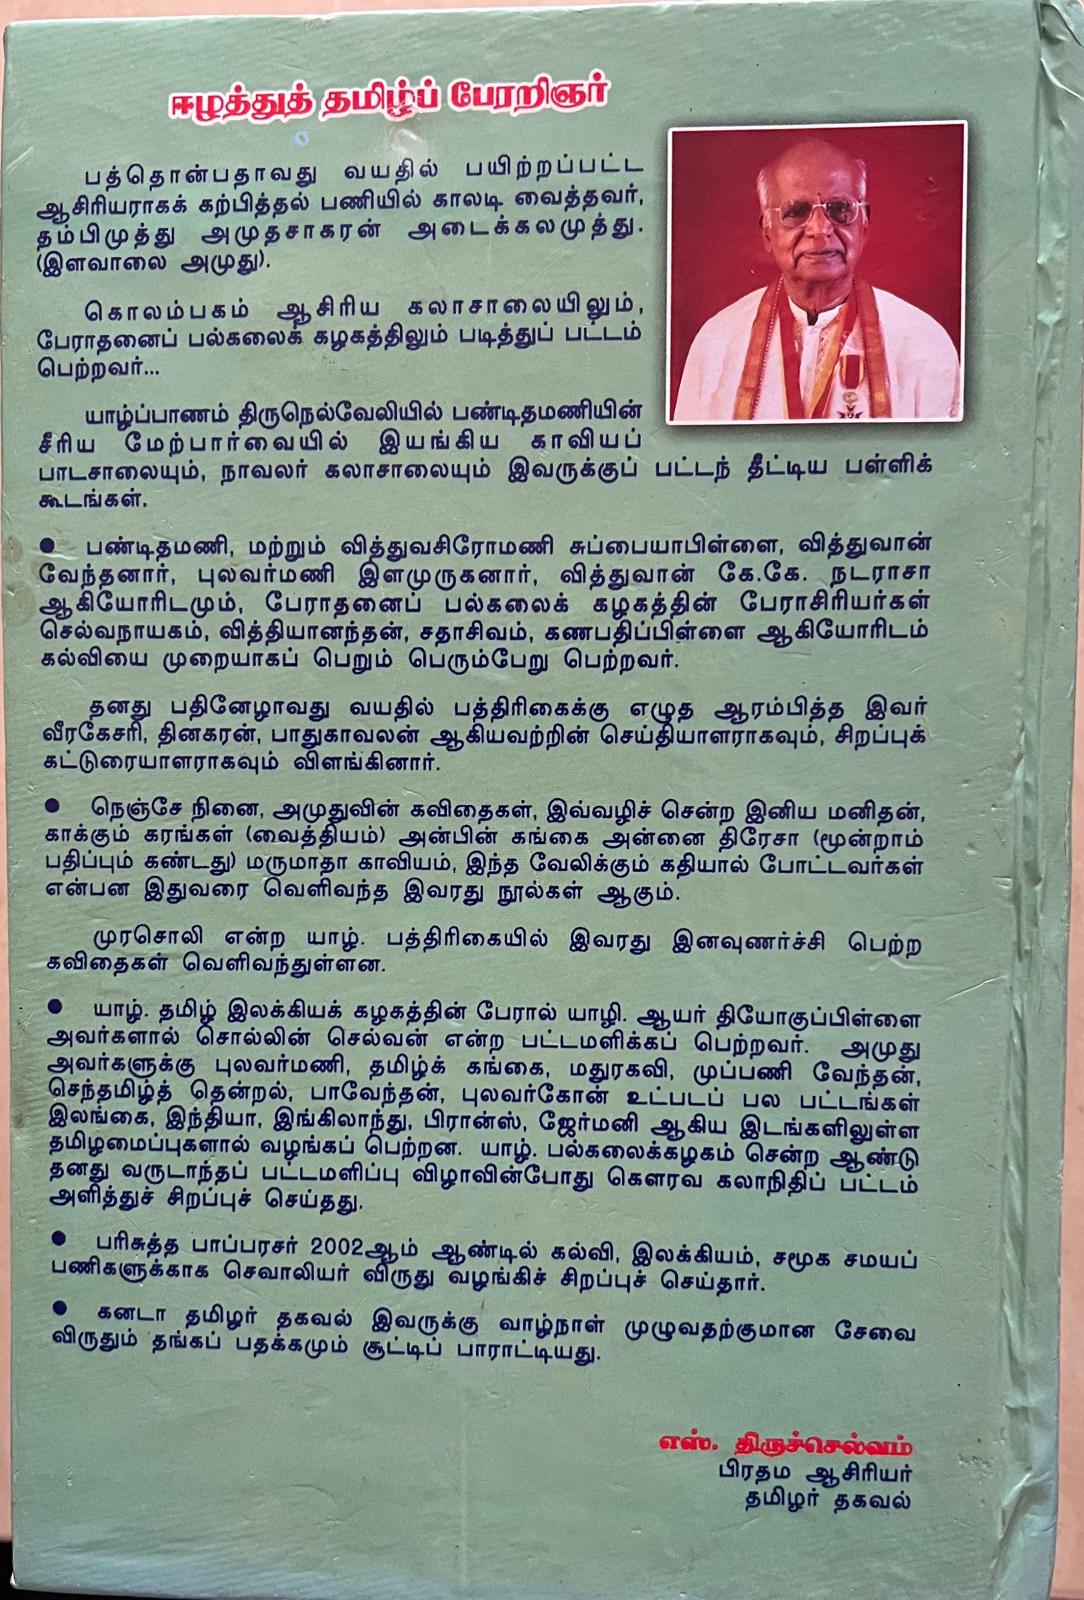 ஈழத்துத் தமிழ்ப் பேரறிஞர்
பத்தொன்பதாவது வயதில் பயிற்றப்பட்ட
ஆசிரியராகக் கற்பித்தல் பணியில் காலடி வைத்தவர்,
தம்பிமுத்து அமுதசாகரன் அடைக்கலமுத்து.
(இளவாலை அமுது).
கொலம்பகம் ஆசிரிய கலாசாலையிலும்,
பேராதனைப் பல்கலைக் கழகத்திலும் படித்துப் பட்டம்
பெற்றவர்...
யாழ்ப்பாணம் திருநெல்வேலியில் பண்டிதமணியின்
சீரிய மேற்பார்வையில் இயங்கிய காவியப்
பாடசாலையும், நாவலர் கலாசாலையும் இவருக்குப் பட்டந் தீட்டிய பள்ளிக்
கூடங்கள்.
● பண்டிதமணி, மற்றும் வித்துவசிரோமணி சுப்பையாபிள்ளை, வித்துவான்
வேந்தனார், புலவர்மணி இளமுருகனார், வித்துவான் கே.கே. நடராசா
ஆகியோரிடமும், பேராதனைப் பல்கலைக் கழகத்தின் பேராசிரியர்கள்
செல்வநாயகம், வித்தியானந்தன், சதாசிவம், கணபதிப்பிள்ளை ஆகியோரிடம்
கல்வியை முறையாகப் பெறும் பெரும்பேறு பெற்றவர்.
தனது பதினேழாவது வயதில் பத்திரிகைக்கு எழுத ஆரம்பித்த இவர்
வீரகேசரி, தினகரன், பாதுகாவலன் ஆகியவற்றின் செய்தியாளராகவும், சிறப்புக்
கட்டுரையாளராகவும் விளங்கினார்.
● நெஞ்சே நினை, அமுதுவின் கவிதைகள், இவ்வழிச் சென்ற இனிய மனிதன்,
காக்கும் கரங்கள் (வைத்தியம்) அன்பின் கங்கை அன்னை திரேசா (மூன்றாம்
பதிப்பும் கண்டது) மருமாதா காவியம், இந்த வேலிக்கும் கதியால் போட்டவர்கள்
என்பன இதுவரை வெளிவந்த இவரது நூல்கள் ஆகும்.
முரசொலி என்ற யாழ். பத்திரிகையில் இவரது இனவுணர்ச்சி பெற்ற
கவிதைகள் வெளிவந்துள்ளன.
● யாழ். தமிழ் இலக்கியக் கழகத்தின் பேரால் யாழி. ஆயர் தியோகுப்பிள்ளை
அவர்களால் சொல்லின் செல்வன் என்ற பட்டமளிக்கப் பெற்றவர். அமுது
அவர்களுக்கு புலவர்மணி, தமிழ்க் கங்கை, மதுரகவி, முப்பணி வேந்தன்,
செந்தமிழ்த் தென்றல், பாவேந்தன், புலவர்கோன் உட்படப் பல பட்டங்கள்
இலங்கை, இந்தியா, இங்கிலாந்து, பிரான்ஸ், ஜேர்மனி ஆகிய இடங்களிலுள்ள
தமிழமைப்புகளால் வழங்கப் பெற்றன. யாழ். பல்கலைக்கழகம் சென்ற ஆண்டு
தனது வருடாந்தப் பட்டமளிப்பு விழாவின்போது கௌரவ கலாநிதிப் பட்டம்
அளித்துச் சிறப்புச் செய்தது.
● பரிசுத்த பாப்பரசர் 2002ஆம் ஆண்டில் கல்வி, இலக்கியம், சமூக சமயப்
பணிகளுக்காக செவாலியர் விருது வழங்கிச் சிறப்புச் செய்தார்.
● கனடா தமிழர் தகவல் இவருக்கு வாழ்நாள் முழுவதற்குமான சேவை
விருதும் தங்கப் பதக்கமும் சூட்டிப் பாராட்டியது.
எஸ். திருச்செல்வம்
பிரதம ஆசிரியர்
தமிழர் தகவல்